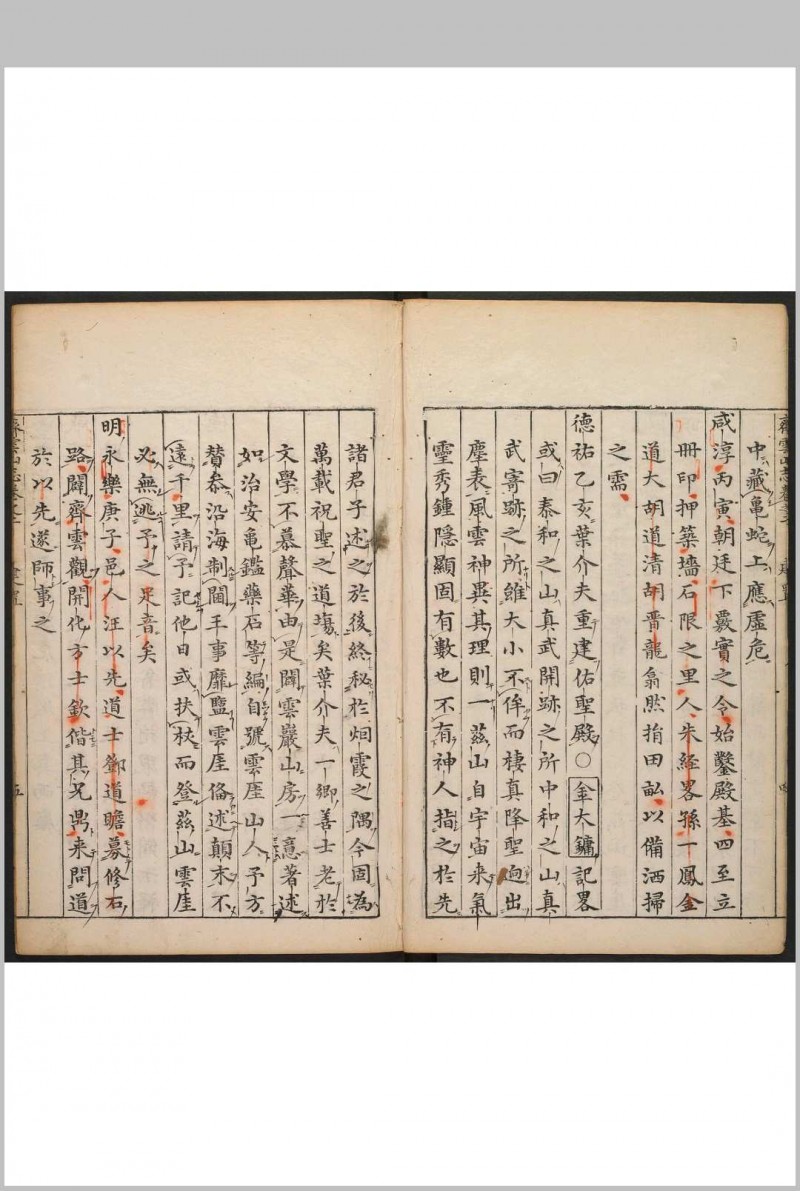 中藏龜蛇上應虛危
咸淳丙寅朝廷下覈實之令始鑿殿基四至立
冊印押築墻石限之里人朱經畧孫一鳳金
道大胡道清胡晋龍翕然捐田畝以備洒掃
之需
德祐乙亥葉介夫重建佑聖殿○金大鏞記畧
或曰泰和之山真武開跡之所中和之山真
武寄跡之所維大小不侔而棲真降聖逈出
塵表風雲神異其理則一茲山自宇宙來氣
靈秀鍾隱顯固有數也不有神人指之於先
諸君子述之於後終秘於烟霞之隅今固為
萬載祝聖之道塲矣葉介夫一鄉善士老於
文學不慕聲華由是闢雲巖山房一意著述
如治安龜鑑藥石等編自號雲厓山人予方
賛叅沿海制閫王事靡盬雲厓俻述顛末不
遠千里請予記他日或扶杖而登茲山雲厓
必無逃予之足音矣
明永樂庚子邑人汪以先道士鄧道瞻募修石
路闢齊雲觀開化方士欽偕其兄鼎来問道
於以先遂師事之